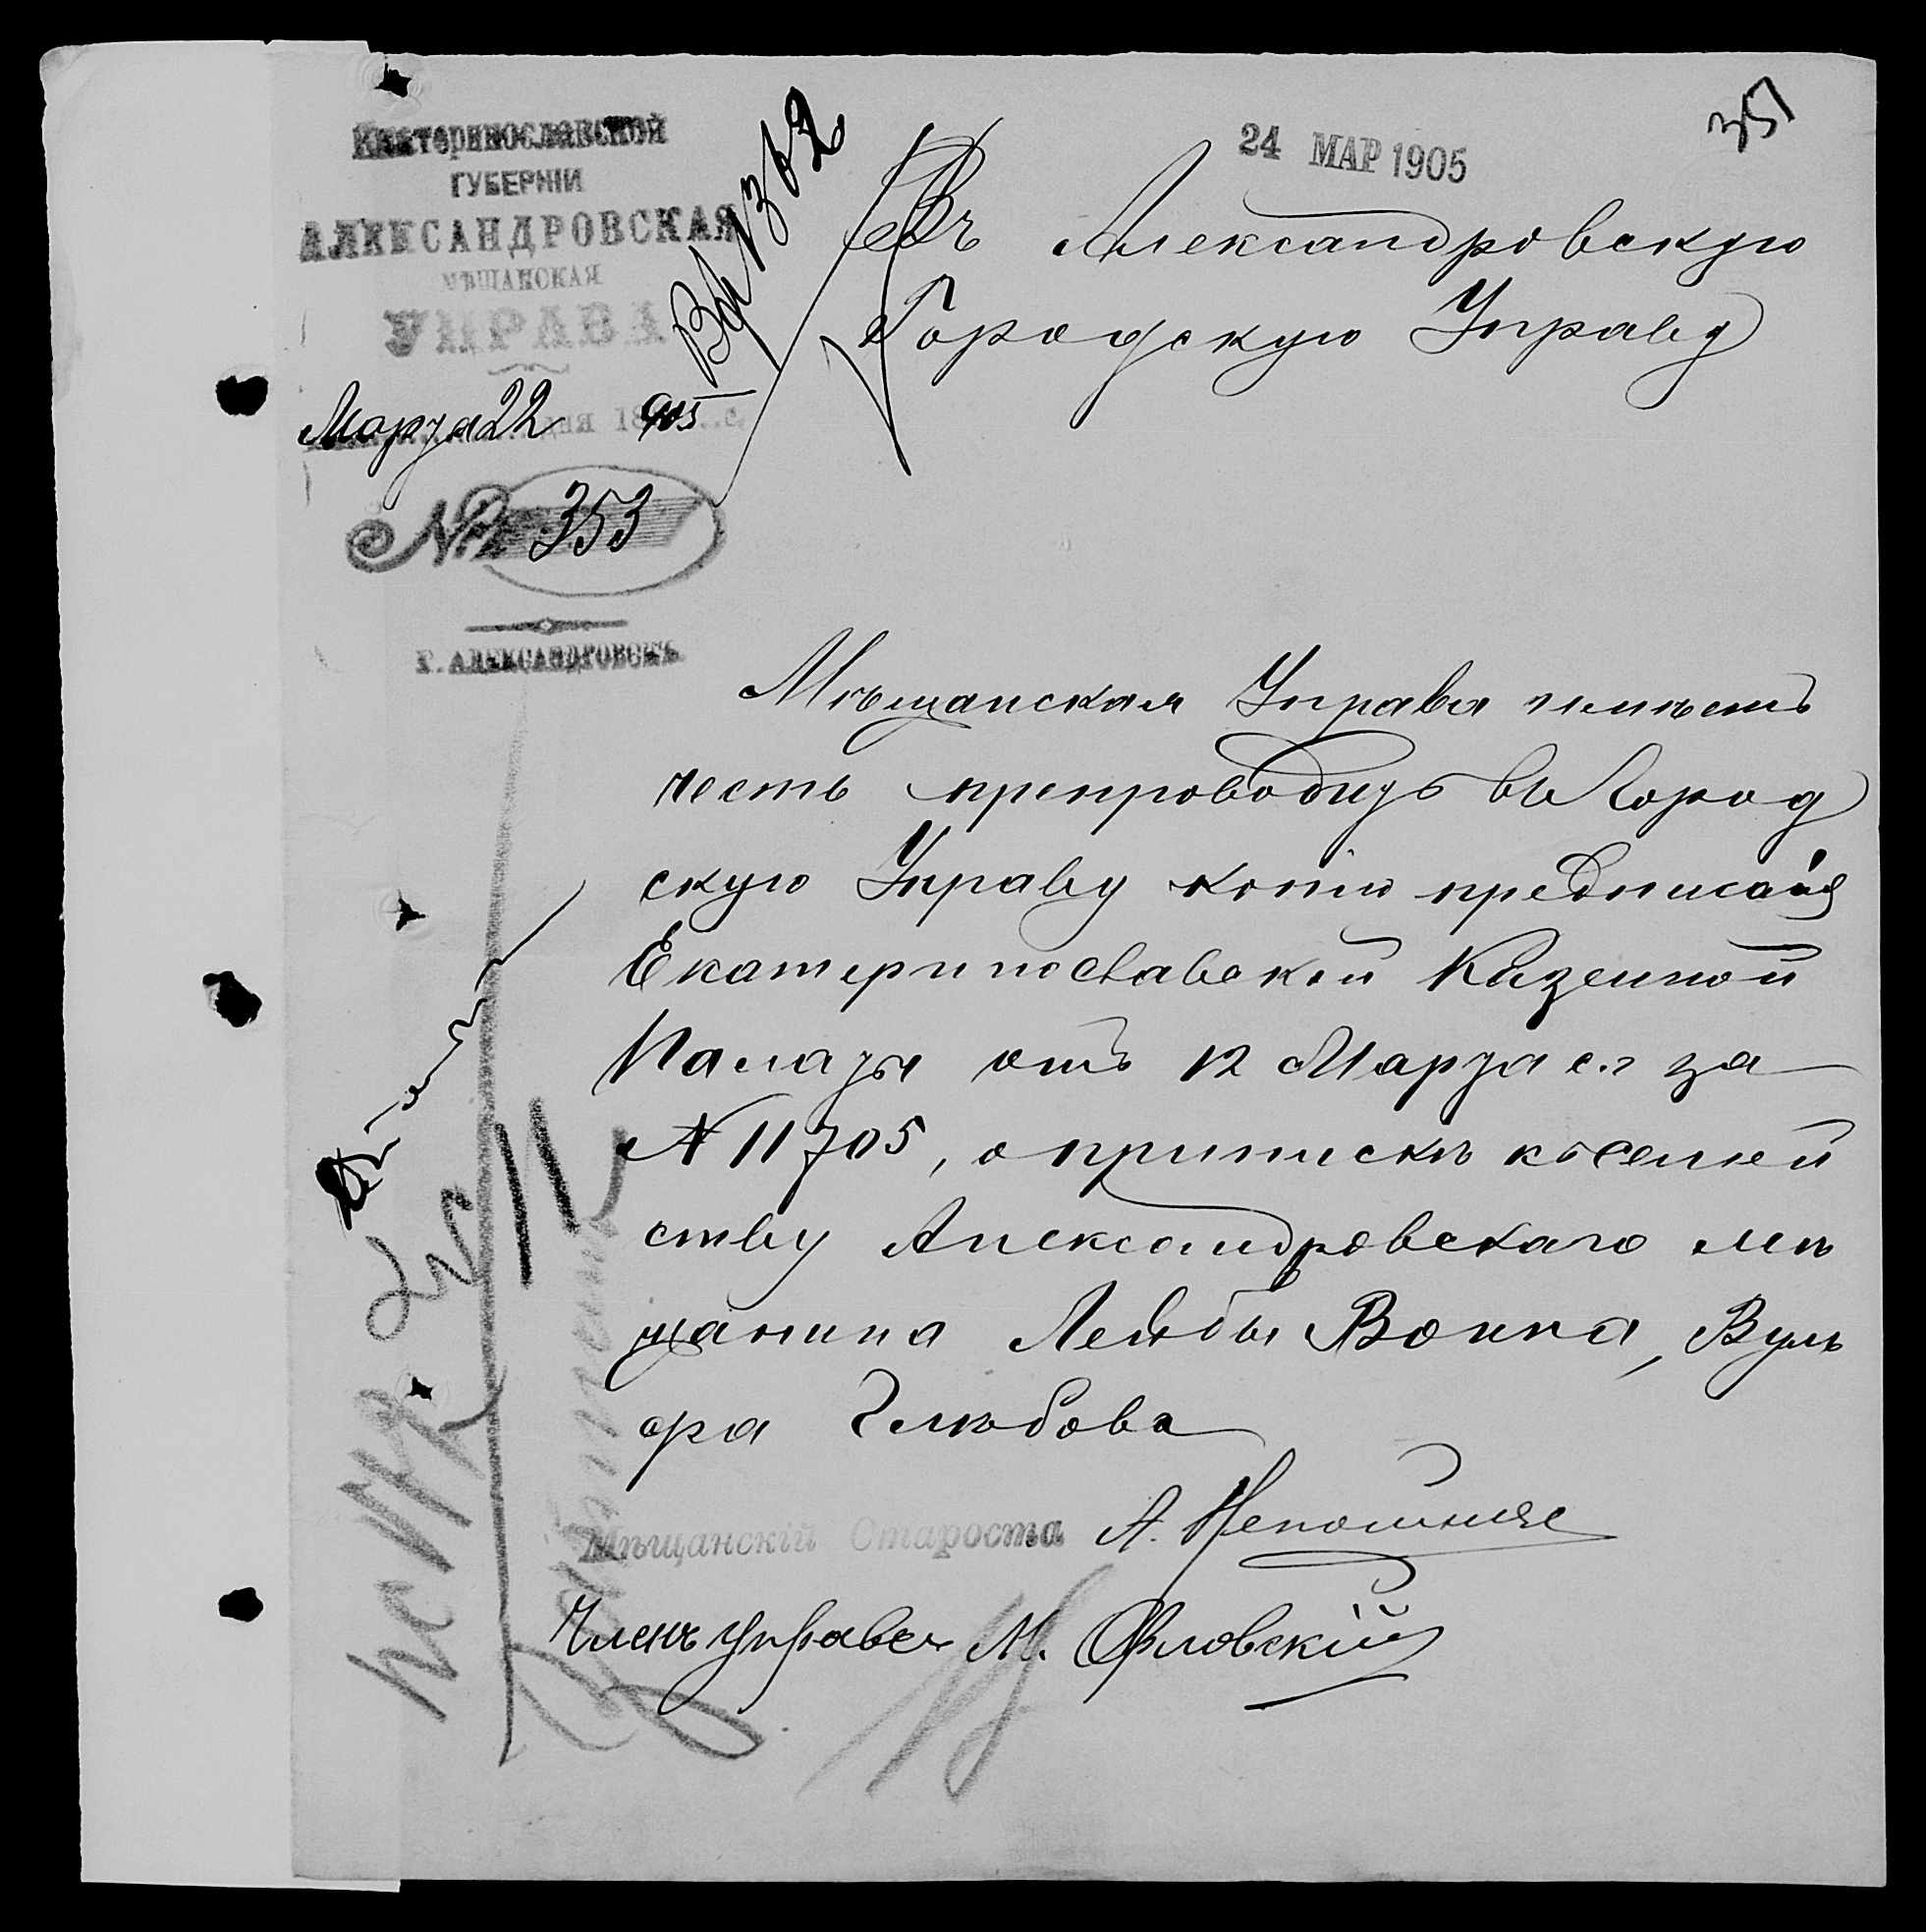 Екатеринославской
ГУБЕРНІИ
АЛЕКСАНДРОВСКАЯ
МѢЩАНСКАЯ
УПРАВА
Марта 22 дня 1905 г.
№ 353
Г. АЛЕКСАНДРОВСКЪ
Вх 1362
24 МАР 1905
351
Въ Александровскую
Городскую Управу
Мѣщанская Управа имѣетъ
честь препроводить въ Город
скую Управу копію предписанія
Екатеринославской Казенной
Палаты отъ 12 Марта с.г за
№ 11705, о припискѣ къ семей
ству Александровскаго мѣ
щанина Лейбы Вокка, Вуль
фа Глѣбова
Мѣщанскій Староста А.
Членъ управы М. Орловскій